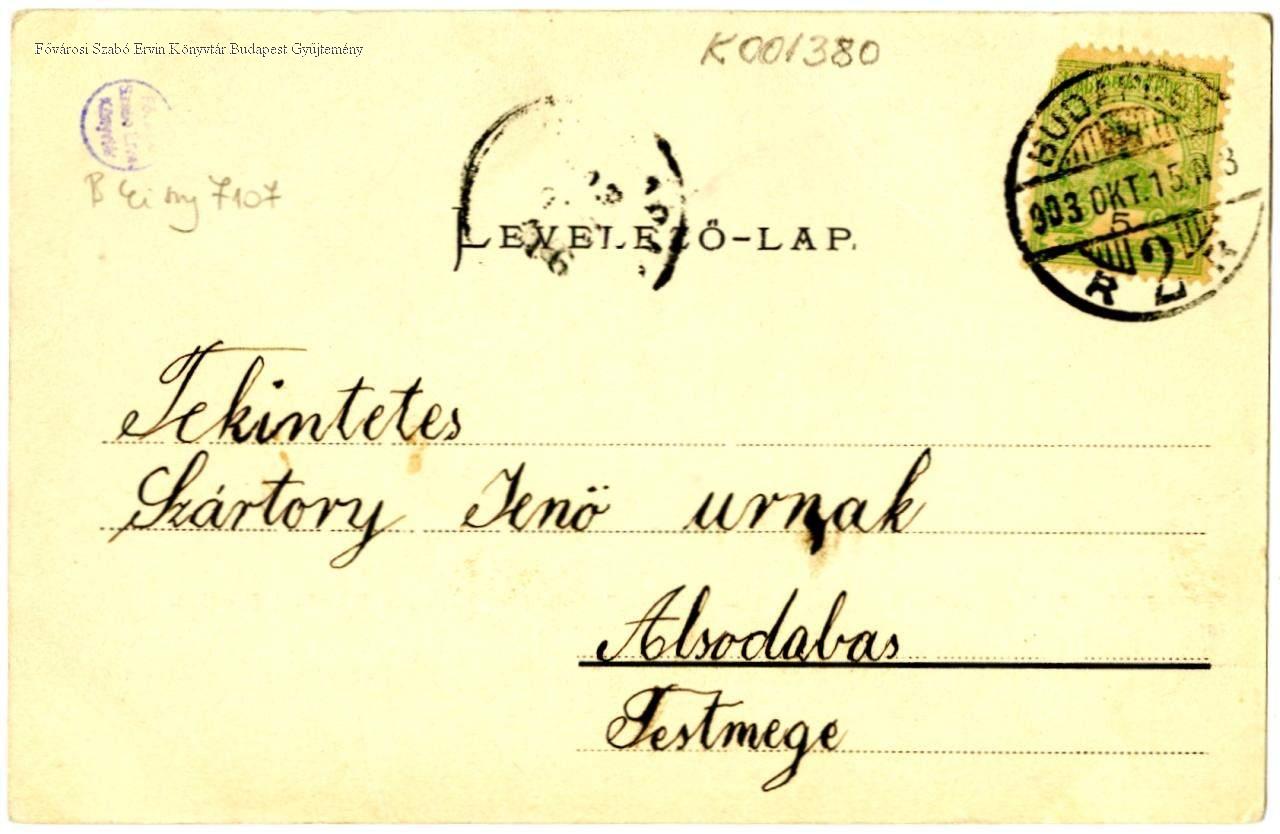 Fővárosi Szabó Ervin Könyvtár Budapest Gyűjtemény
K001380
BUDAPEST
903 OKT. 15.
5
2
LEVELEZŐ-LAP.
7107
Tekintetes
Szártory Jenő urnak
Alsodabas
Pestmege